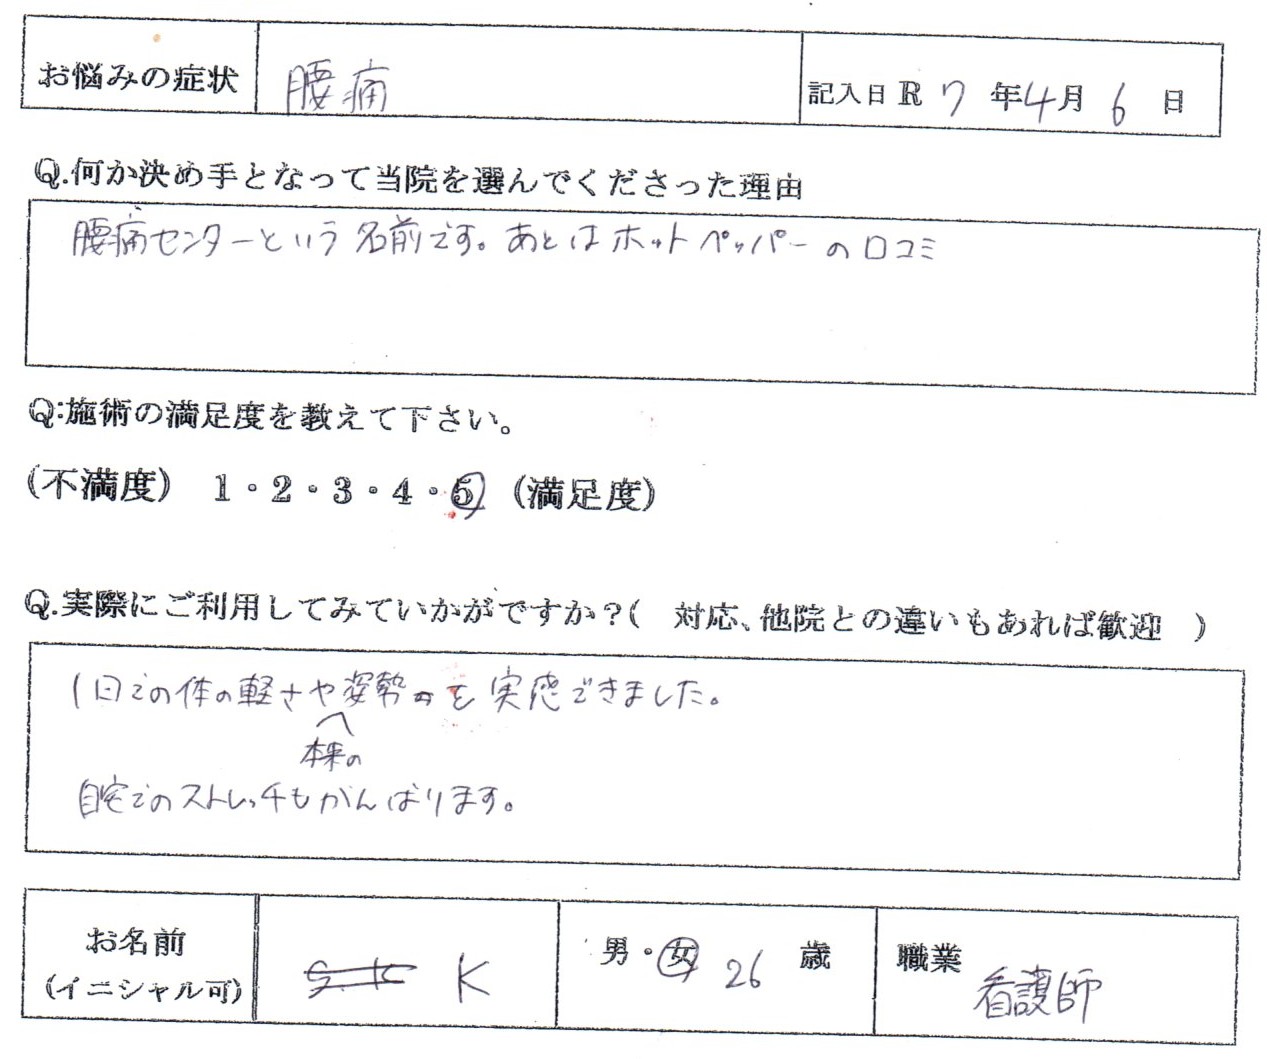 お悩みの症状 腰痛 記入日 R 7 年 4 月 6 日
Q.何か決め手となって当院を選んでくださった理由
腰痛センターという名前です。あとはホットペッパーの口コミ
Q:施術の満足度を教えて下さい。
(不満度) 1・2・3・4・5 (満足度)
Q.実際にご利用してみていかがですか?( 対応、他院との違いもあれば歓迎 )
1日での体の軽さや姿勢を実感できました。
本来の
自宅でのストレッチもがんばります。
お名前 K 男・女 26 歳 職業 看護師
(イニシャル可)